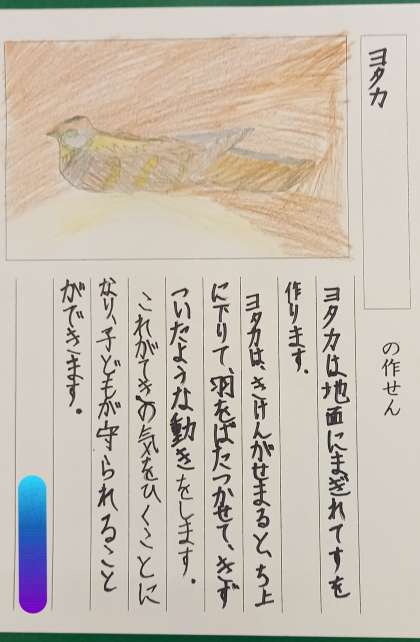 ヨタカ
の作せん
ヨタカは地面にまぎれてすを
作ります。
ヨタカは、きけんがせまると、ち上
に下りて、羽をばたつかせて、きず
ついたような動きをします。
これがてきの気をひくことに
なり、子どもが守られること
ができます。